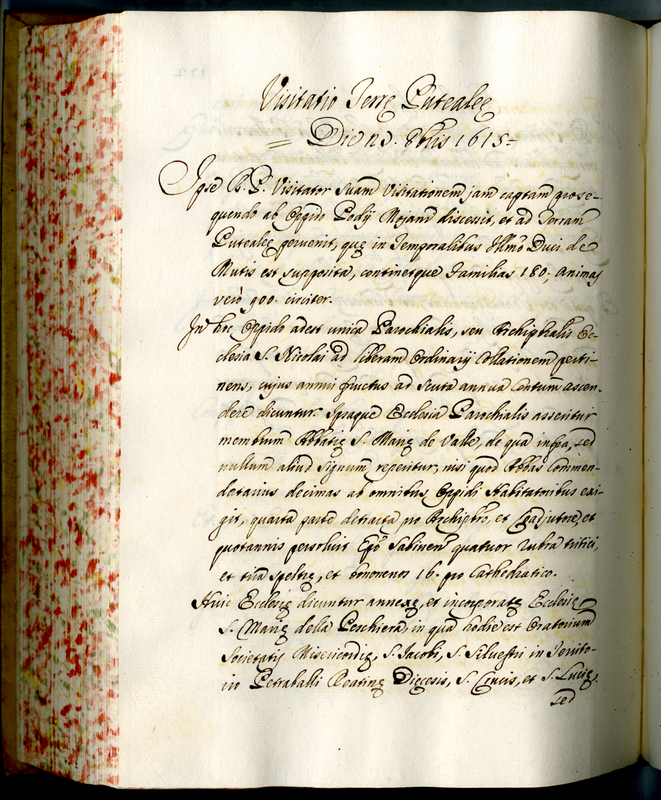 Visitatio Terrę Putealeę
Die nd. 8bris 1615
Ipse R. P. Visitator suam visitationem jam cęptam prose-
quendo ab Oppido Podij Mojani discessit, et ad Terram
Putealeę pervenit, quę in Temporalibus Illmo Duci de
Mutis est supposita, continetque Familias 180. animas
verò 900. circiter.
In hoc Oppido adest unica Parochialis, seu Archiptralis Ec-
clesia S. Nicolai ad liberam Ordinarij collationem perti-
nens, cujus annui fructus ad scuta annua centum ascen-
dere dicuntur. Ipsaque Ecclesia Parochialis asseritur
membrum Abbatię S. Marię de Valle, de qua infra, sed
nullum aliud signum reperitur, nisi quod Abbas Commen-
datarius decimas ab omnibus Oppidi Habitatoribus exi-
git, quarta parte detracta pro Archiptro, et Coadjutore, et
quotannis persolvit Epō Sabinen quatuor rubra tritici,
et tria speltę, et bononenos 16. pro Cathedratico.
Huic Ecclesię dicuntur annexę, et incorporatę Ecclesię
S. Marię della Peschiera, in qua hodie est Oratorium
Societatis Misericordię, S. Jacobi, S. Silvestri in Territo-
rio Petraballi Reatinę Dięcesis, S. Crucis, et S. Lucię.
sed